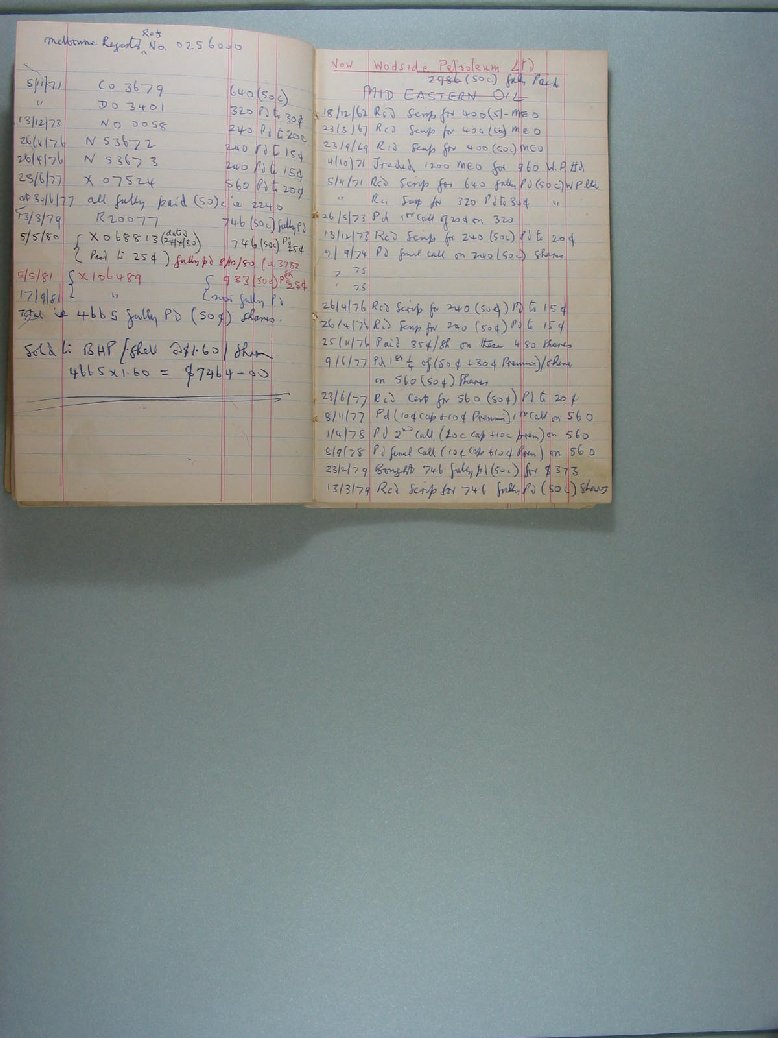 Melbourne Register No. 0256000
Reg
5/11/71 CO 3679 640 (50¢)
" DO 3401 320 Pd to 30¢
13/12/73 NO 0058 240 Pd to 20¢
26/4/76 N 53672 240 Pd to 15¢
26/4/76 N 53673 240 Pd to 15¢
23/6/77 X 07524 560 Pd to 20¢
30/6/77 all fully paid (50)c ie 2240
13/3/79 R20077 746 (50c) fully Pd
5/5/80 X068813 746 (50c) Pd 25¢
Paid to 25¢) fully pd
5/5/81 X106489 933 (50c) Pd 25¢
17/9/81 " fully Pd
Total ie 4665 fully Pd (50¢) shares.
Sold to BHP/Shell @ $1.60/share
4665 x 1.60 = $7464-00
Now Wodside Petroleum Ltd
2986 (50c) fully Paid
MID EASTERN OIL
18/12/62 Rcd Scrip for 400 (5/- MEO
23/3/67 Rcd Scrip for 400 (50) MEO
23/9/69 Rcd Scrip for 400 (50c) MEO
4/10/71 Traded 1200 MEO for 960 W.P. Ltd
5/11/71 Rcd Scrip for 640 fully Pd (50c) W P Ltd
" Rcd Scrip for 320 Pd to 30¢ "
26/5/73 Pd 1st call of 20¢ on 320
13/12/73 Rcd Scrip for 240 (50¢) Pd to 20¢
9/9/74 Pd final call on 240 (50c) shares
? 75
" 75
26/4/76 Rcd Scrip for 240 (50¢) Pd to 15¢
26/4/76 Rcd Scrip for 240 (50¢) Pd to 15¢
25/11/76 Paid 35¢/sh on these 480 Shares
9/6/77 Pd 1st ½ of (50¢ + 30¢ Premium)/share
on 560 (50¢) Shares
23/6/77 Rcd Cert for 560 (50¢) Pd to 20¢
8/11/77 Pd (10¢ cap + 10¢ Premium) 1st call on 560
1/4/78 Pd 2nd Call (10c cap + 10c prem) on 560
5/8/78 Pd final Call (10¢ cap + 10¢ Prem) on 560
23/2/79 Bought 746 fully pd (50c) for $373
13/3/79 Rcd Scrip for 746 fully Pd (50c) Shares